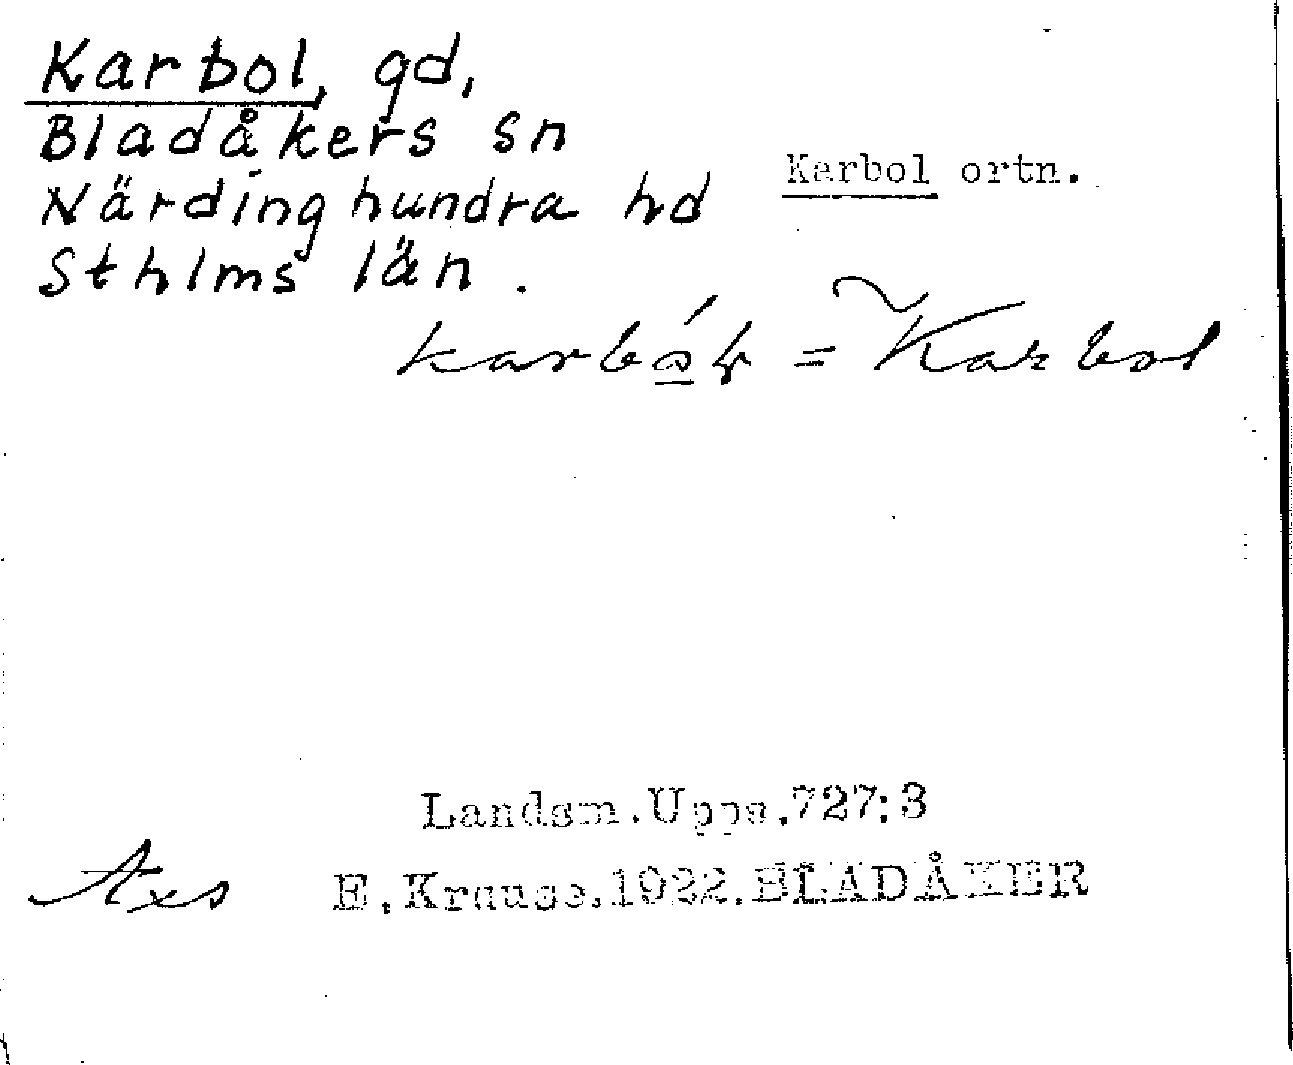 Karbol, gd,
Bladåkers sn
Närdinghundra hd
Sthlms län.
Karbol ortn.
= Karbol
Landsm.Upps.727:3
Axs
E.Krause.1922.BLADÅKER